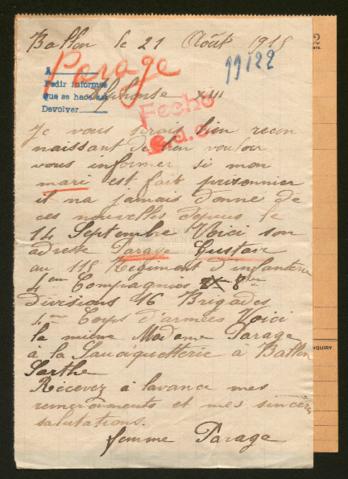 Ballon le 21 Août 1915
19122
Parage
Alphonse XIII
A
Pedir informes
que se hace
Devolver
Fecho
Je vous serais bien recon
naissant de bien vouloir
vous informer si mon
mari est fait prisonnier
il na jamais donne de
ces nouvelles depuis le
14 Septembre Voici son
adrese Parage Gustave
au 115 Regiment d'infanterie
Compagnies 8
Divisions 16 Brigades
4em Corps d'armées Voici
la mienne Madame Parage
à la à Ballon
Sarthe
Recevez à lavance mes
remerciements et mes sincères
salutations.
femme Parage